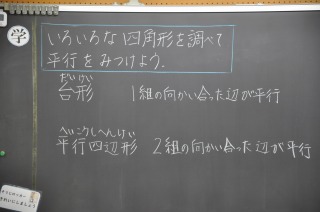 学
いろいろな四角形を調べて
平行をみつけよう。
だいけい
台形 1組の向かい合った辺が平行
へいこうしへんけい
平行四辺形 2組の向かい合った辺が平行